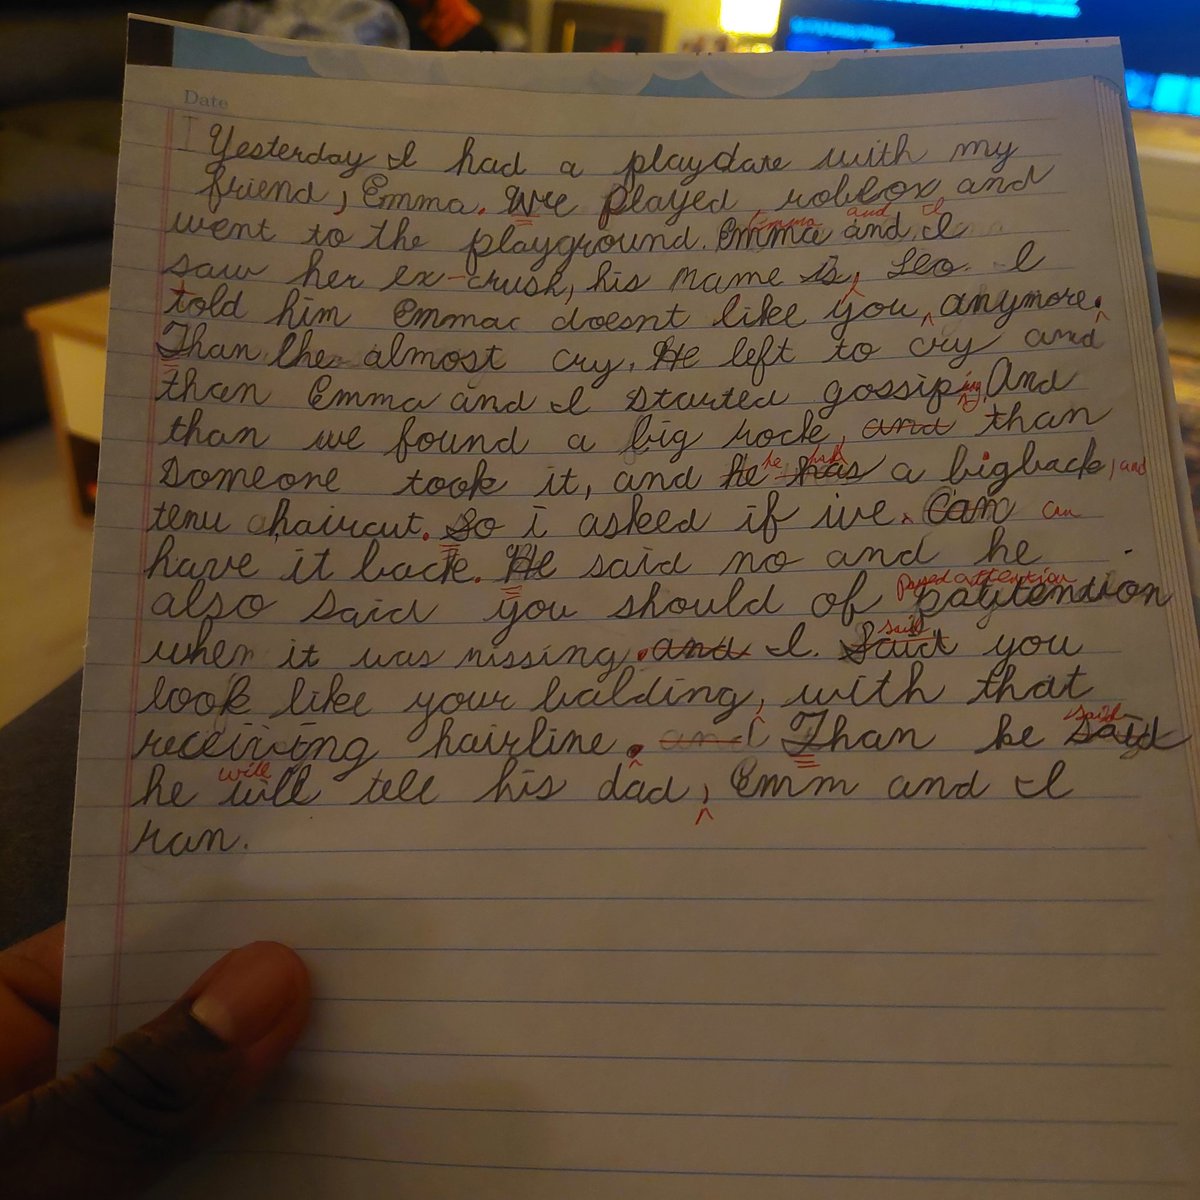 Date
Yesterday I had a playdate with my
friend, Emma. We played roblox and
Emma and I
went to the playground. Emma and I
saw her ex-crush, his name is, Leo. I
told him Emma doesnt like you, anymore.
Than he almost cry. He left to cry and
than Emma and I started gossiping. And
than we found a big rock, and than
he has
someone took it, and he has a bigback, and
tenu haircut. So i asked if we can can
have it back. He said no and he
payed attention
also said you should of paytendion
said
when it was missing. and I. Said you
look like your balding, with that
said
receiving hairline. and Than he said
will
he will tell his dad, Emm and I
ran.